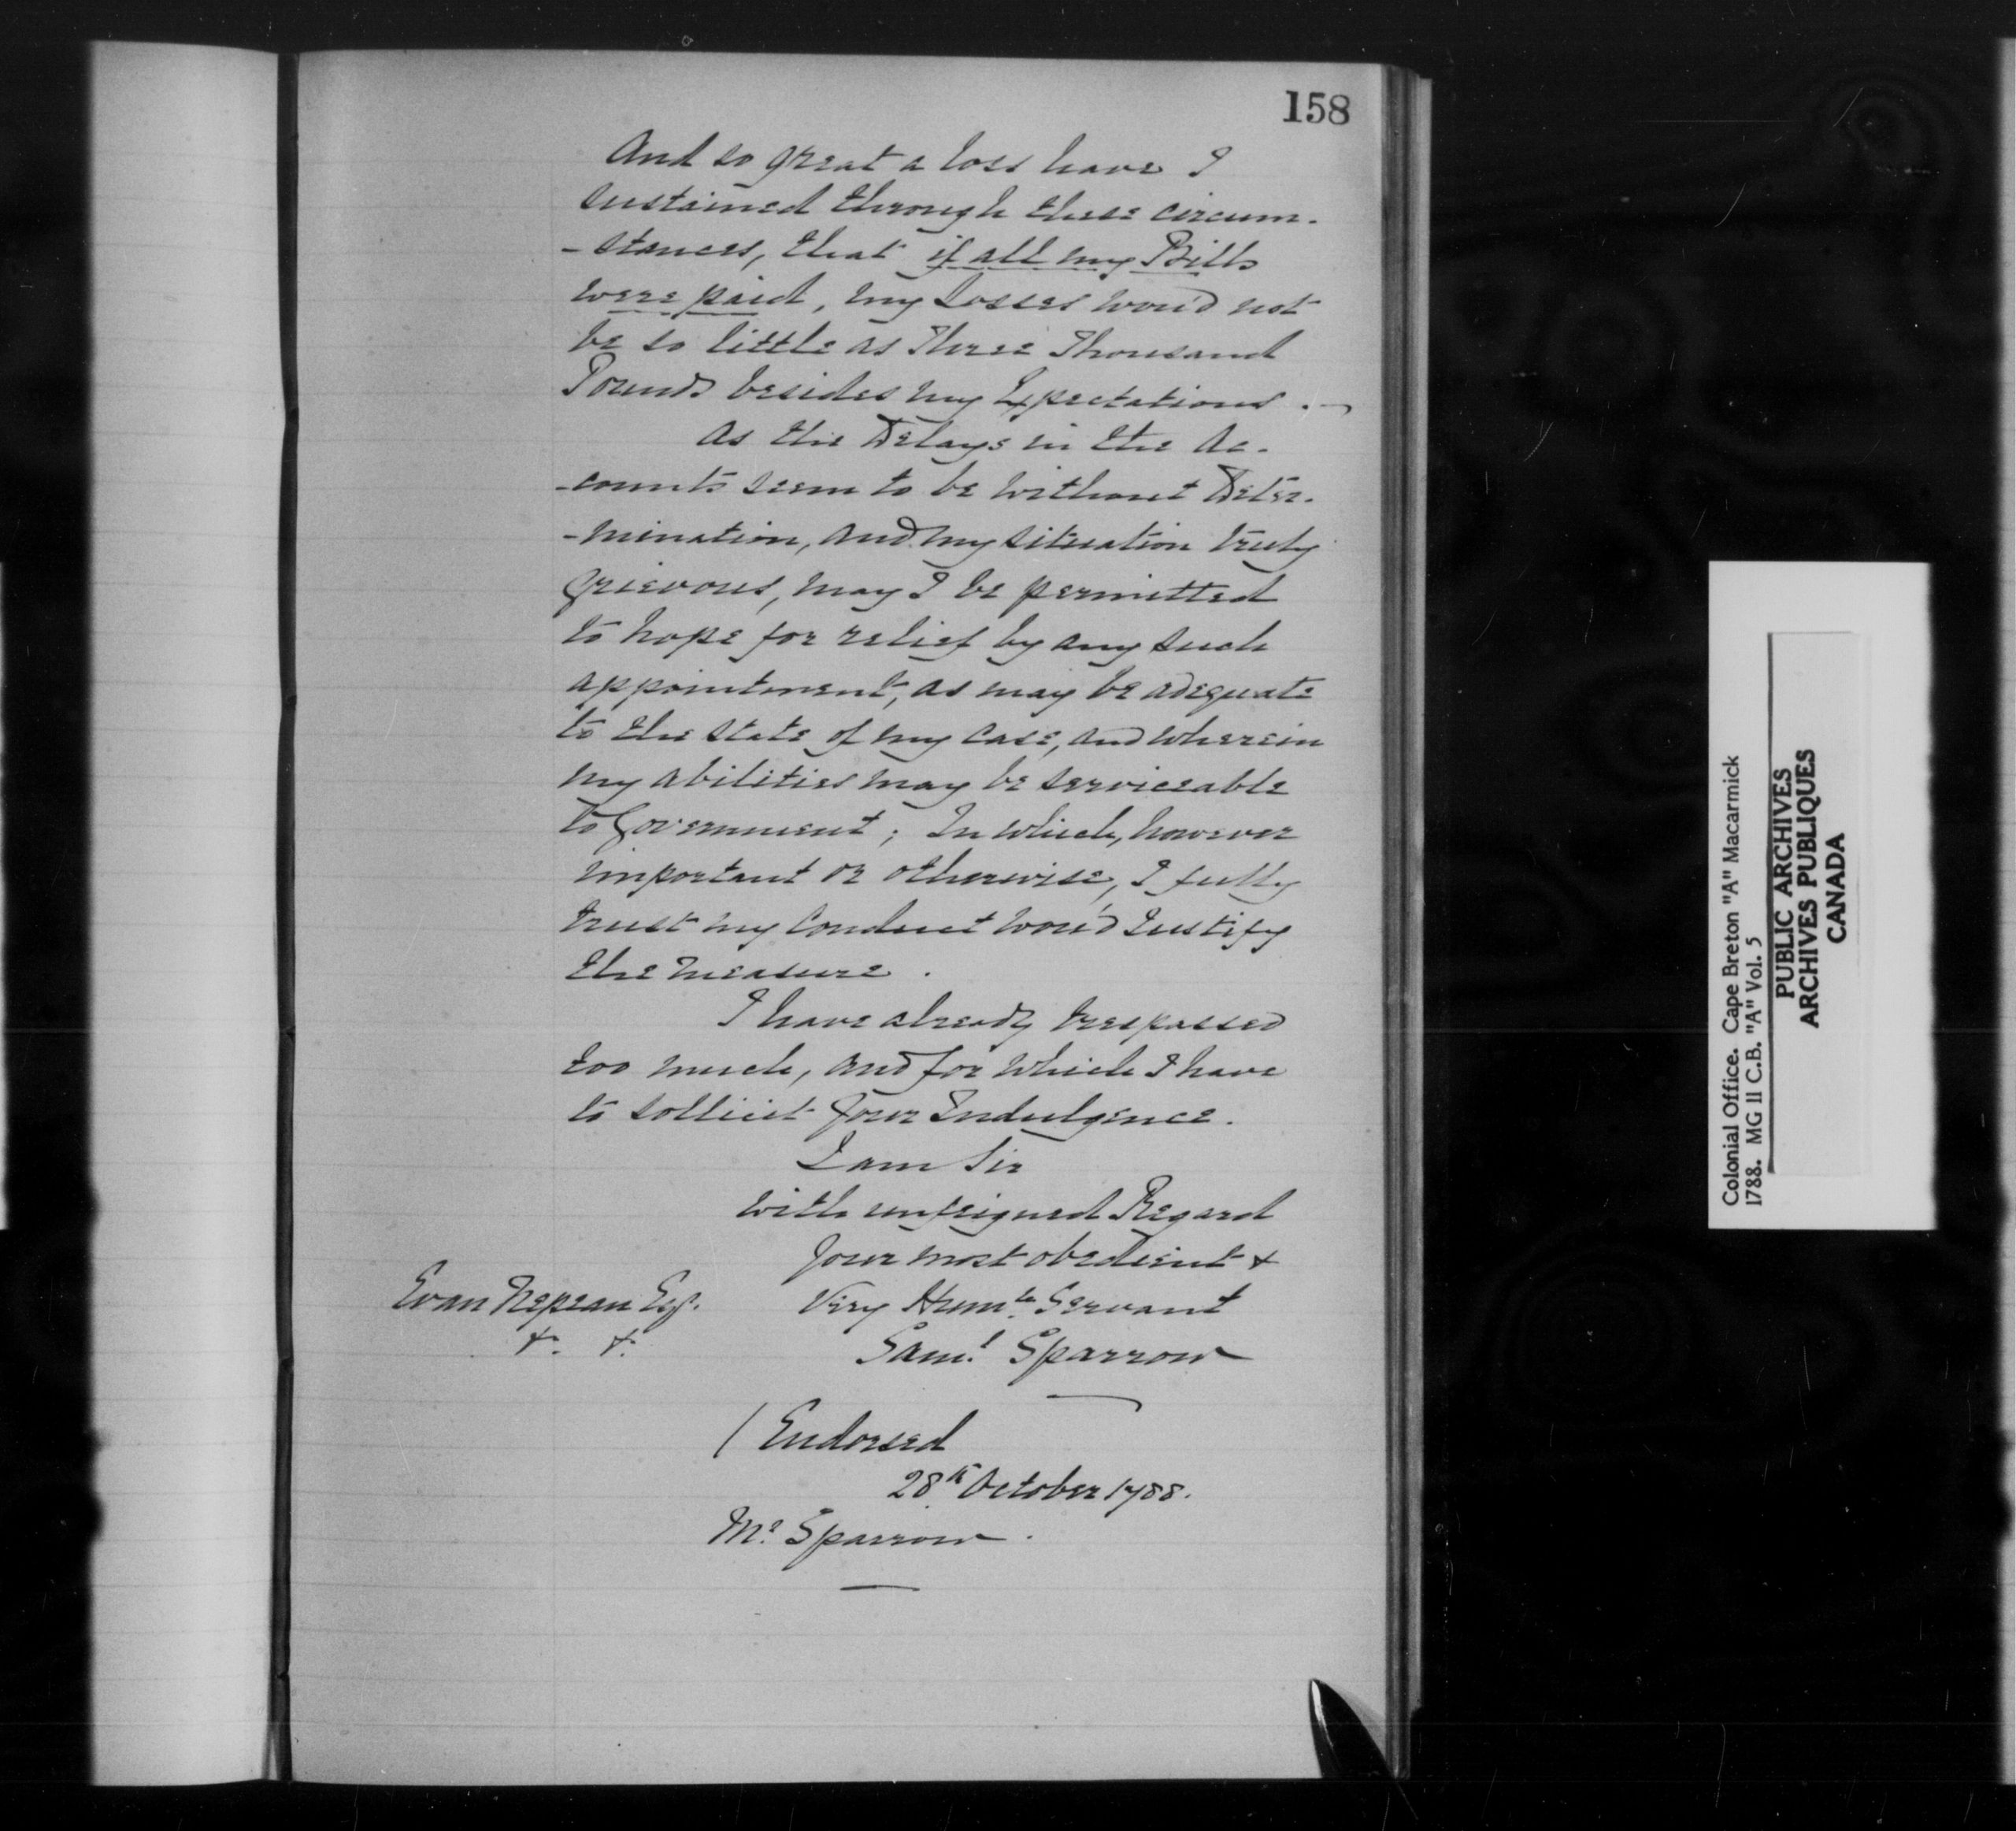 158
And so great a loss have I
sustained through these circum-
-stances, that if all my Bills
were paid, my Losses wou'd not
be so little as Three Thousand
Pounds besides my Expectations.
As the Delays in the Ac-
-counts seem to be without Deter-
-mination, and my situation truly
Grievous, may I be permitted
to hope for relief by any such
appointment, as may be adequate
to the state of my case, and wherein
my abilities may be serviceable
to Government; In which, however
important or otherwise, I fully
trust my Conduct wou'd Justify
the measure.
I have already trespassed
too much, and for which I have
to sollicit Your Indulgence.
I am Sir
with unfeigned Regard
Your most obedient &
Very Humle. Servant
Saml. Sparrow
Evan Nepean Esqr.
&. &.
(Endorsed
28th October 1788.
Mr. Sparrow.
Colonial Office. Cape Breton "A" Macarmick
1788. MG 11 C.B. "A" Vol. 5
PUBLIC ARCHIVES
ARCHIVES PUBLIQUES
CANADA